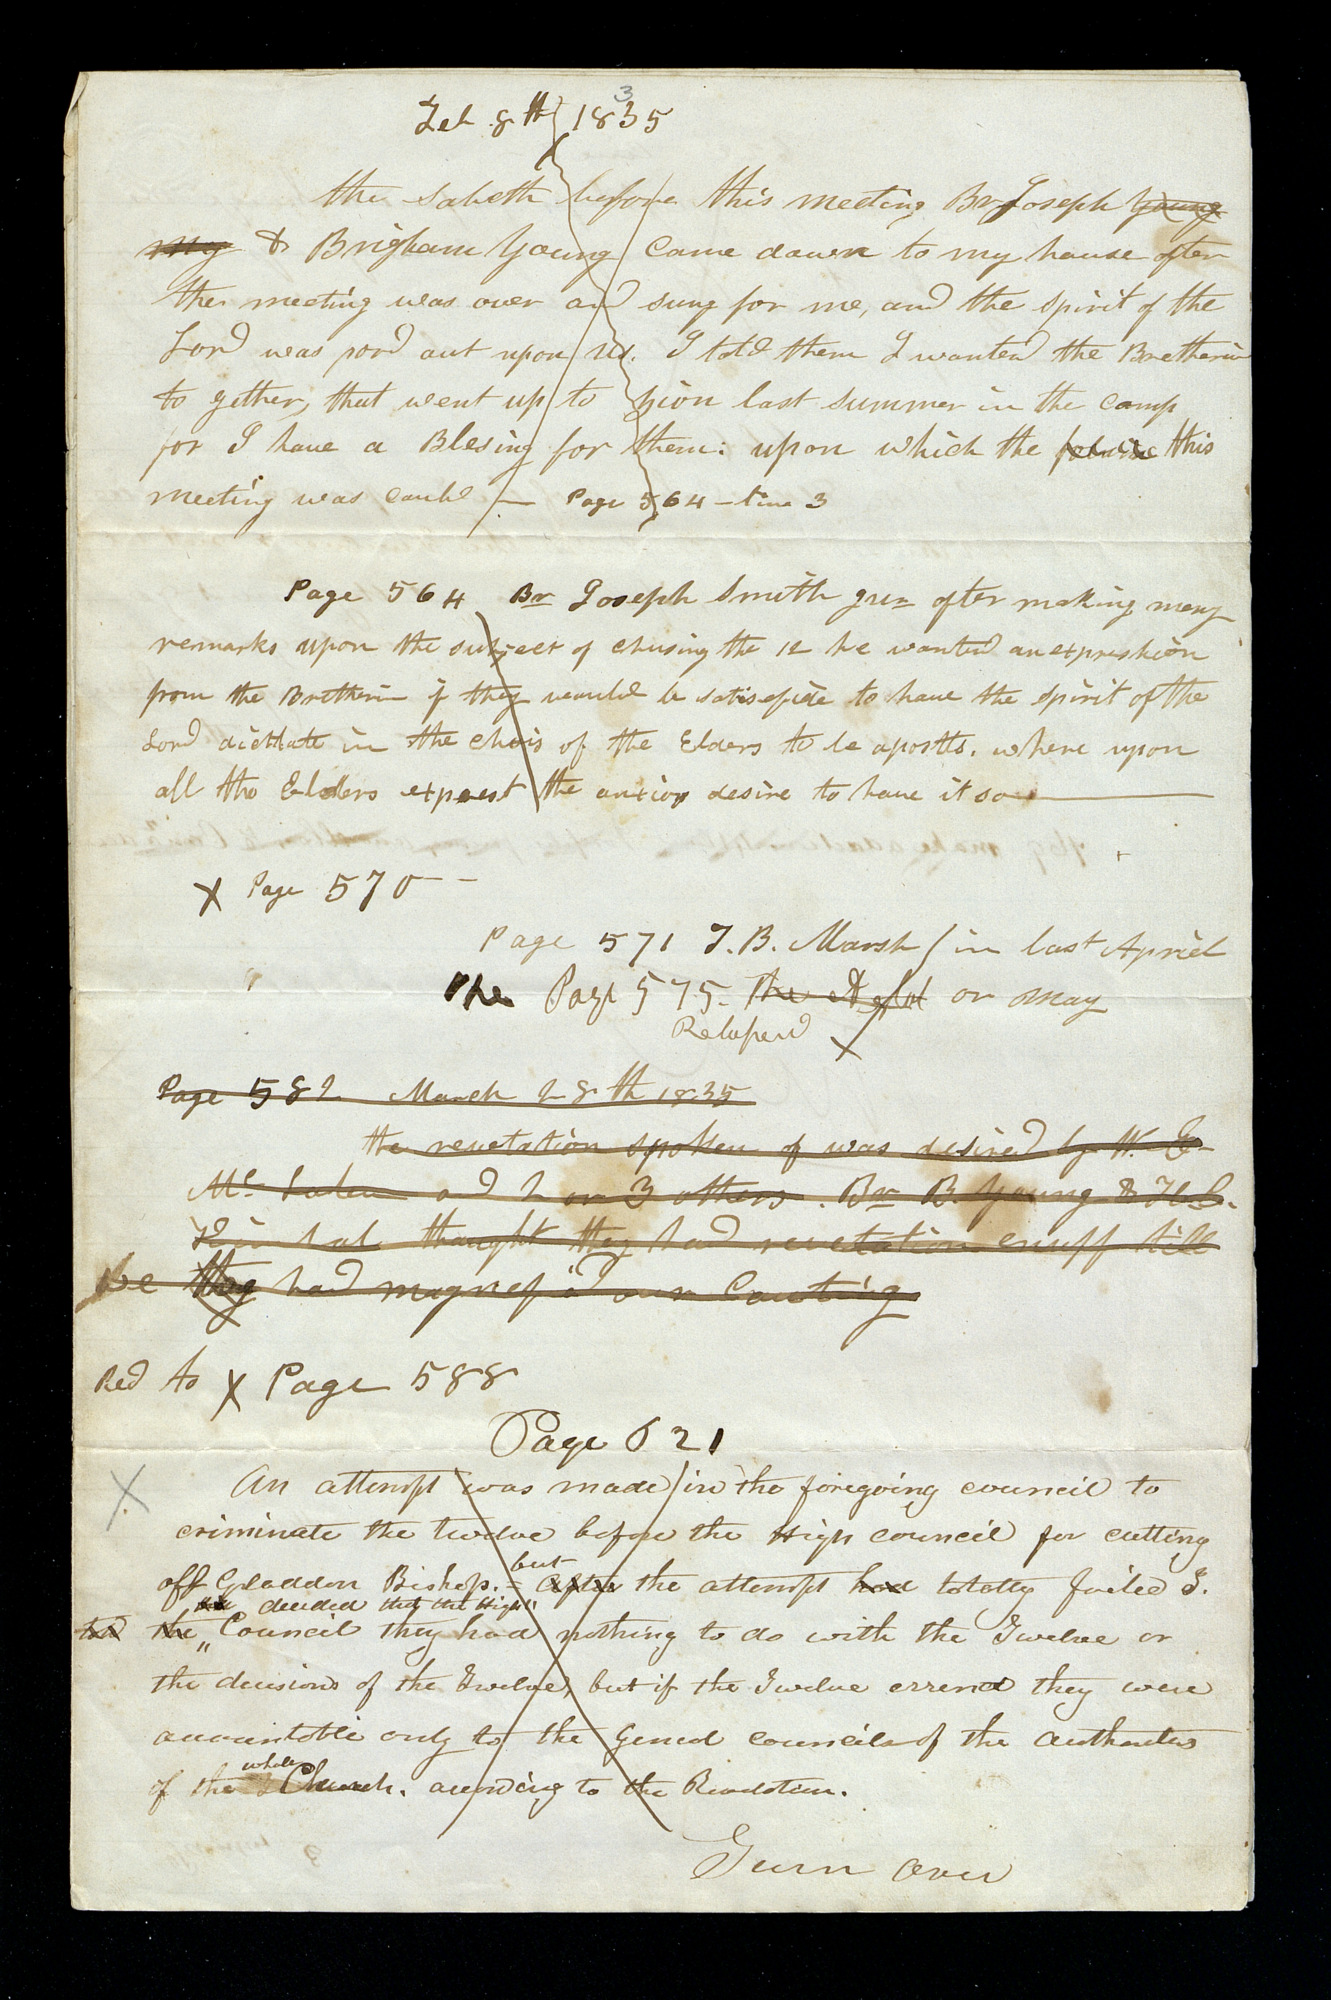 Feb 8th 1835
3
the sabeth before this meeting Br Joseph Young
my & Brigham Young came down to my house after
the meeting was over and sung for me, and the spirit of the
Lord was pord out upon us. I told them I wanted the Bretherin
to gether, that went up to Zion last summer in the camp
for I have a Blesing for them: upon which the this
meeting was cauld — Page 564 – line 3
Page 564 Br Joseph Smith after making meny
remarks upon the subject of chusing the 12 he wanted an expreshion
from the Bretherin if they would be satisefide to have the spirit of the
Lord dicttate in the chois of the Elders to be apostls. where upon
all the Elders exprest the anxios desire to have it so —
X Page 570 –
Page 571 T. B. Marsh / in last Apriel
The Page 575. The or may
Relapsed X
Page 582 March 28th 1835
the revetation spoken of was desired by W. E
Mc Lelen and 2 or 3 others. Br B. Young & H. C.
Kimbal thought they had revetation enuff till
we they had magnefid our Cauling
Red to X Page 588
Page 621
X An attempt was made in the foregoing council to
criminate the twelve before the High council for cutting
off Gladdon Bishop. – but after the attempt had totally failed J.
decided that the High"
had the "Council they had nothing to do with the Twelve or
the decisions of the Twelve, but if the Twelve errened they were
accountable only to the General councils of the authorities
of the whole Church. according to the Revelation.
Turn Over